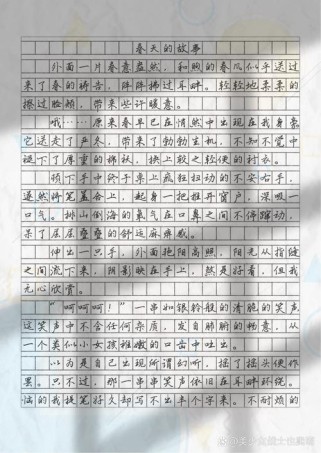 春天的故事
外面一片春意盎然，和煦的春风似乎送过
来了春的祷告，阵阵拂过耳畔。轻轻地柔柔的
擦过脸颊，带来些许暖意。
哦……原来春早已在悄然中出现在我身旁
它送走了严冬，带来了勃勃生机，不知不觉中
褪下了厚重的棉袄，换上较之轻便的衬衣。
顿下手中终于桌上疯狂扭动的不安右手，
遂然将笔盖合上，起身一把推开窗户，深吸一
口气。排山倒海的氧气在口鼻之间不停蹿动，
杂了层层叠叠的舒适麻痹感。
伸出一只手，外面艳阳高照，阳光从指缝
之间流下来，阴影映在手上，煞是好看，但我
无心欣赏。
“呵呵呵！”一串如银铃般的清脆的笑声
这笑声中不含任何杂质，发自肺腑的畅意，从
一个类似小女孩稚嫩的口齿中吐出。
以为是自己出现所谓幻听，摇了摇头便作
罢。只不过，那一串串笑声依旧在耳畔环绕。
恼的我提笔好久却写不出半个字来。不耐烦的